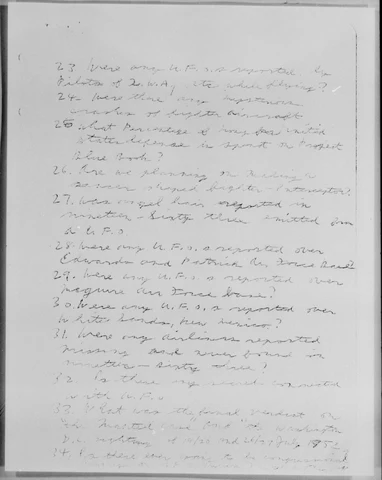 23. Were any U.F.O.s reported by
Pilots of T.W.A, etc while flying?
24. Were there any mysterious
crashes of fighter aircraft
25 What Percentage of money for United
States defense is spent on Project
Blue Book?
26. Are we planning on building a
saucer shaped fighter-interceptor?
27. Was angel hair reported in
nineteen-sixty three emitted from
a U.F.O.
28. Were any U.F.O.s reported over
Edwards and Patrick Air Force Base?
29. Were any U.F.O.s reported over
McGuire Air Force Base?
30. Were any U.F.O.s reported over
White Sands, New Mexico?
31. Were any airliners reported
missing and never found in
nineteen-sixty three?
32. Is there any connected
with U.F.O
33. What was the final verdict on
the and the Washington
D.C. sightings of July, 1952
34. Is there